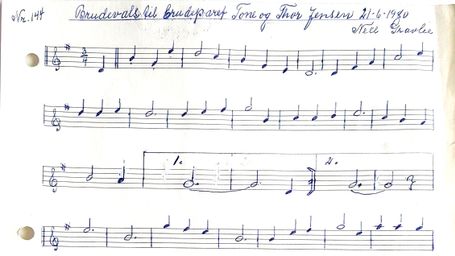 Nr. 144 Brudevals til Brudeparet Tone og Thor Jensen 21-6-1980
Nils Gravlie
3
4
1. 2.